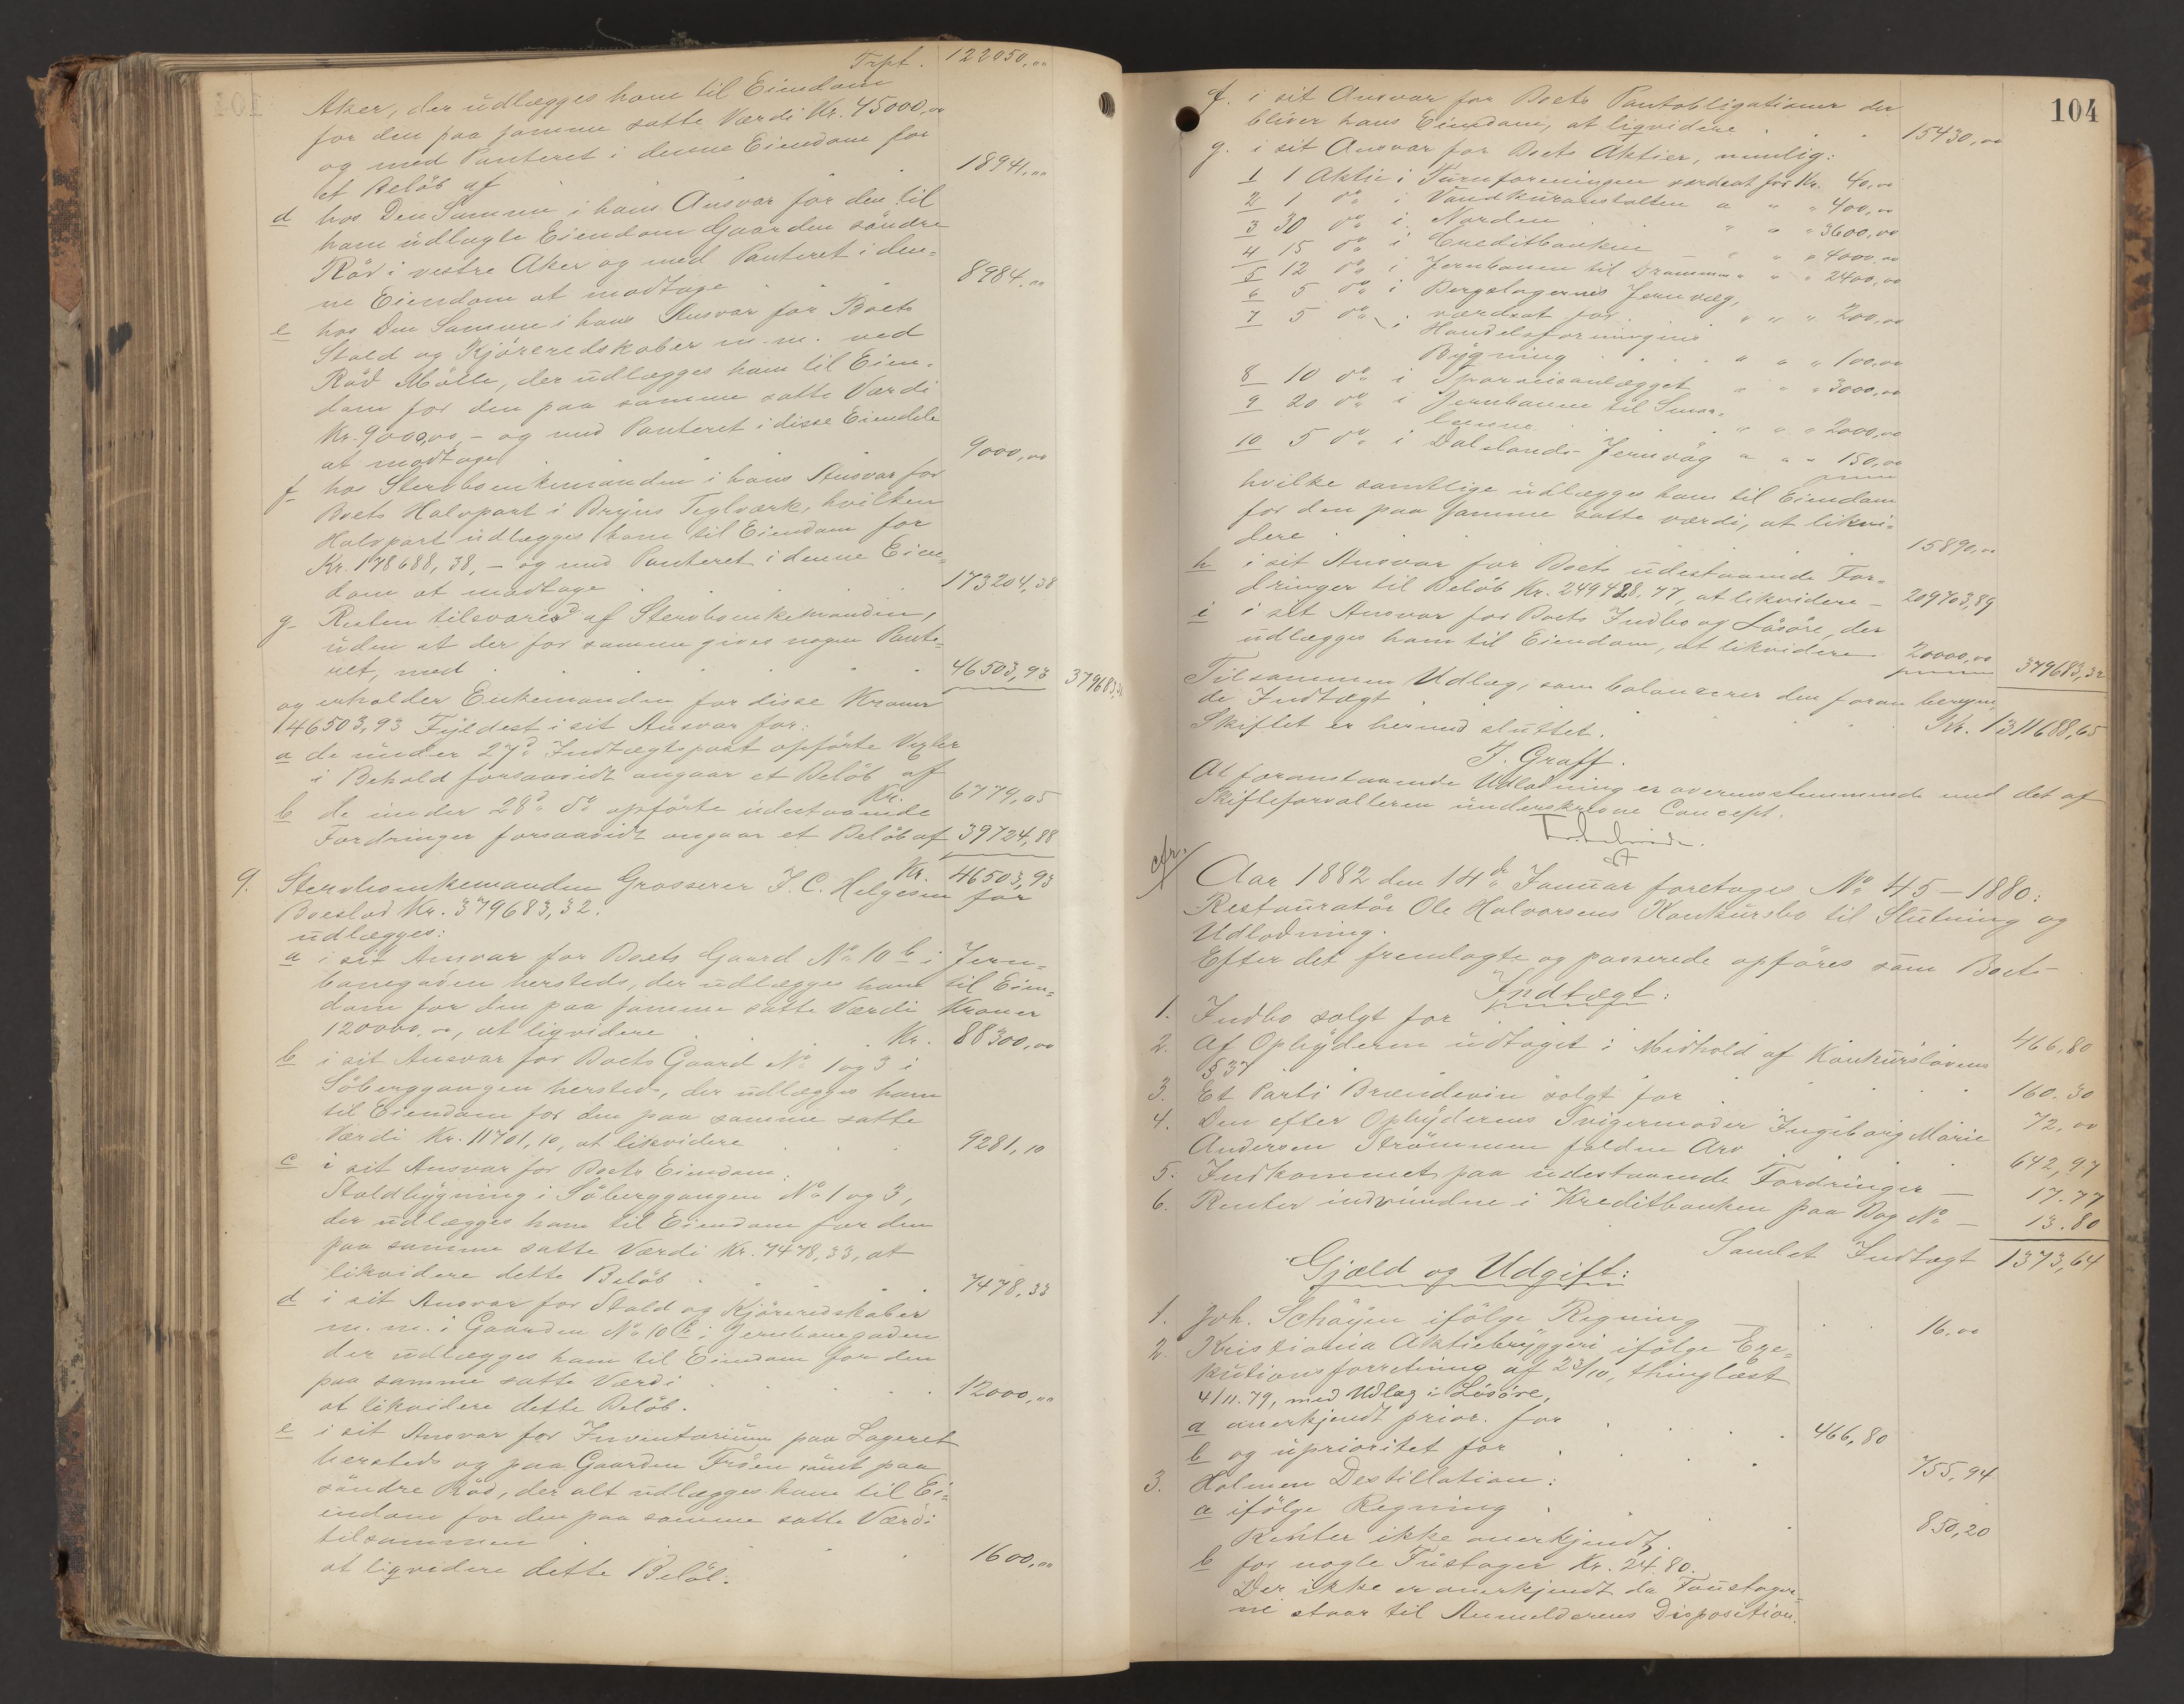 Trpt. 122050,""
Aker, der udlægges ham til Eiendom
for den paa samme satte Værdi Kr. 45000,00
og med Panteret i denne Eiendom for
et Beløb af . . . 18941,""
d hos Den Samme i hans Ansvar for den til
ham udlagte Eiendom Gaarden søndre
Röd i vestre Aker og med Panteret i den=
ne Eiendom at modtage . . . 8984,""
e hos Den Samme i hans Ansvar for Boets
Stald og Kjöreredskaber m.m. ved
Röd Mölle, der udlægges ham til Eien=
dom for den paa samme satte Værdi
Kr. 9000,00,- og med Panteret i disse Eiendele
at modtage . . . 9000,00
f hos Sterboenkemanden i hans Ansvar for
Boets Halvpart i Bryns Teglværk, hvilken
Halvpart udlægges ham til Eiendom for
Kr. 178688,38,- og med Panteret i denne Eien=
dom at modtage . . . 173204,38
g- Resten tilsvares af Sterboenkemanden,
uden at der for samme gives nogen Pante=
ret, med . . . 46503,93 379683,32
og erholder Enkemanden for disse Kroner
146503,93 Fyldest i sit Ansvar for:
a de under 27d Indtægtspost opförte Vexler
i Behold forsaavidt angaar et Beløb af
Kr. 6779,05
b de under 28d do opförte udestaaende
Fordringer forsaavidt angaar et Beløb af 39724,88
Kr. 46503,93
9. Sterboenkemanden Grosserer J. C. Helgesen for
Boeslod Kr. 379683,32.
udlægges:
a i sit Ansvar for Boets Gaard No 10 b i Jern=
banegaden hersteds, der udlægges ham til Eien=
dom for den paa samme satte Værdi Kroner
120000,00, at liqvidere . . . Kr. 88300,00
b i sit Ansvar for Boets Gaard No 1 og 3 i
Söberggangen hersteds, der udlægges ham
til Eiendom for den paa samme satte
Værdi Kr. 11701,10, at likvidere . . . 9281,10
c i sit Ansvar for Boets Eiendom:
Staldbygning i Söberggangen No 1 og 3,
der udlægges ham til Eiendom for den
paa samme satte Værdi Kr. 7478,33, at
likvidere dette Beløb . . . 7478,33
d i sit Ansvar for Stald og Kjöreredskaber
m.m. i Gaarden No 10 b i Jernbanegaden
der udlægges ham til Eiendom for den
paa samme satte Værdi . . . 12000,""
at likvidere dette Beløb.
e i sit Ansvar for Inventarium paa Lageret
hersteds og paa Gaarden Fröen samt paa
söndre Röd, der alt udlægges ham til Ei=
endom for den paa samme satte Værdi
tilsammen . . . 1600,""
at liqvidere dette Beløb.
104
f. i sit Ansvar for Boets Pantobligationer der
bliver hans Eiendom, at liqvidere . . . 15430,00
g. i sit Ansvar for Boets Aktier, nemlig:
1 1 Aktie i Turnforeningen værdsat for Kr. 40,00
2 1 do i Vandkuranstalten " " " 400,00
3 30 do i Norden " " " 3600,00
4 15 do i Creditbanken " " " 4000,00
5 12 do i Jernbanen til Drammen " " " 2400,00
6 5 do i Bergslagernes Jernvæg,
værdsat for . " " " 200,00
7 5 do i Handelsforeningens
Bygning . . . " " " 100,00
8 10 do i Sparveisanlægget " " " 3000,00
9 20 do i Jernbanen til Smaa=
lenene . . . " " " 2000,00
10 5 do i Dalslands Jernväg " " " 150,00
hvilke samtlige udlægges ham til Eiendom
for den paa samme satte værdi, at likvi=
dere . . . 15890,00
h i sit Ansvar for Boets udestaaende For=
dringer til Beløb Kr. 249428,77, at likvidere - 209703,89
i i sit Ansvar for Boets Indbo og Lösöre, der
udlægges ham til Eiendom, at likvidere 20000,00 379683,32
Tilsammen Udlæg, som balancerer den foran beregne=
de Indtægt . . . Kr. 1311688,65
Skiftet er hermed sluttet.
J. Graff.
At foranstaaende Udlodning er overensstemmende med det af
Skifteforvalteren underskrevne Concept.
cfr.
Aar 1882 den 14de Januar foretoges No 45-1880:
Restauratör Ole Halvorsens Konkursbo til Slutning og
Udlodning.
Efter det fremlagte og passerede opföres som Boets
Indtægt:
1. Indbo solgt for . . . 466,80
2. Af Opbyderen udtaget i Medhold af Konkurslovens
§ 37 . . . 160.30
3. Et Parti Brændevin solgt for . . . 72,00
4. Den efter Opbyderens Svigermoder Ingeborg Marie
Andersen Strömmen faldne Arv . . . 642,97
5. Indkommet paa udestaaende Fordringer - 17.77
6. Renter indvundne i Kreditbanken paa Bog No - 13.80
Samlet Indtægt 1373,64
Gjæld og Udgift:
1. Joh. Schöyen ifölge Regning . . . 16,00
2. Kristiania Aktiebryggeri ifölge Exe=
kutionsforretning af 23/10, thinglæst
4/11.79, med Udlæg i Lösöre,
a anerkjendt prior. for . . . 466,80
b og uprioritet for . . . 755,94
3. Holmen Destillation:
a ifölge Regning . . . 850,20
Renter ikke anerkjendt.
b for nogle Fustager Kr. 24.80.
Der ikke er anerkjendt da Foustager=
ne staar til Anmelderens Disposition.